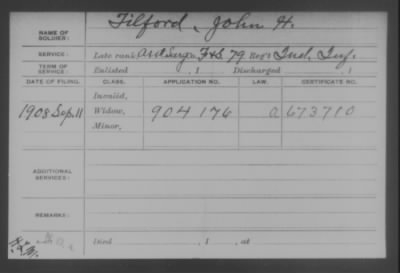 NAME OF SOLDIER: Tilford, John H.
SERVICE: Late rank Asst Surg., F&S 79 Reg't Ind. Inf.
TERM OF SERVICE: Enlisted , 1 Discharged , 1
DATE OF FILING. CLASS. APPLICATION NO. LAW. CERTIFICATE NO.
Invalid,
1908 Sep. 11 Widow, 904176 a 673710
Minor,
ADDITIONAL SERVICES:
REMARKS:
Died , 1 , at